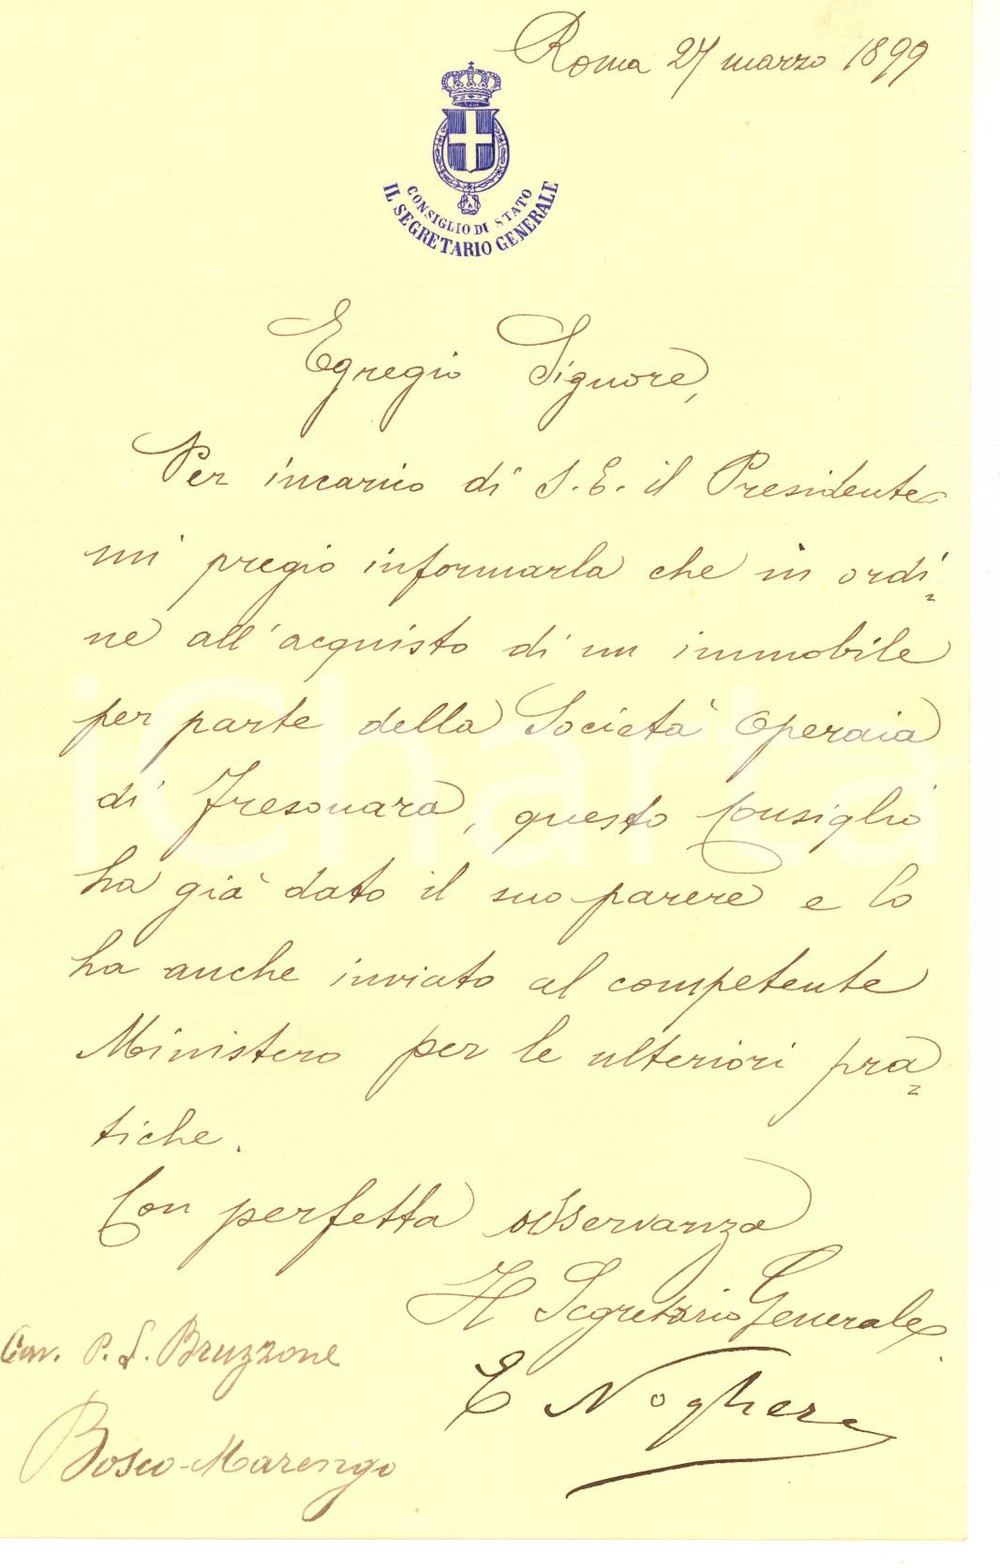 Roma 27 marzo 1899
CONSIGLIO DI STATO
IL SEGRETARIO GENERALE
Egregio Signore,
Per incarico di S. E. il Presidente
mi pregio informarla che in ordi-
ne all'acquisto di un immobile
per parte della Società Operaia
di Fresonara, questo Consiglio
ha già dato il suo parere e lo
ha anche inviato al competente
Ministero per le ulteriori pra-
tiche.
Con perfetta osservanza
Il Segretario Generale
E Noghera
Cav. P. L. Bruzzone
Bosco-Marengo
iCharta